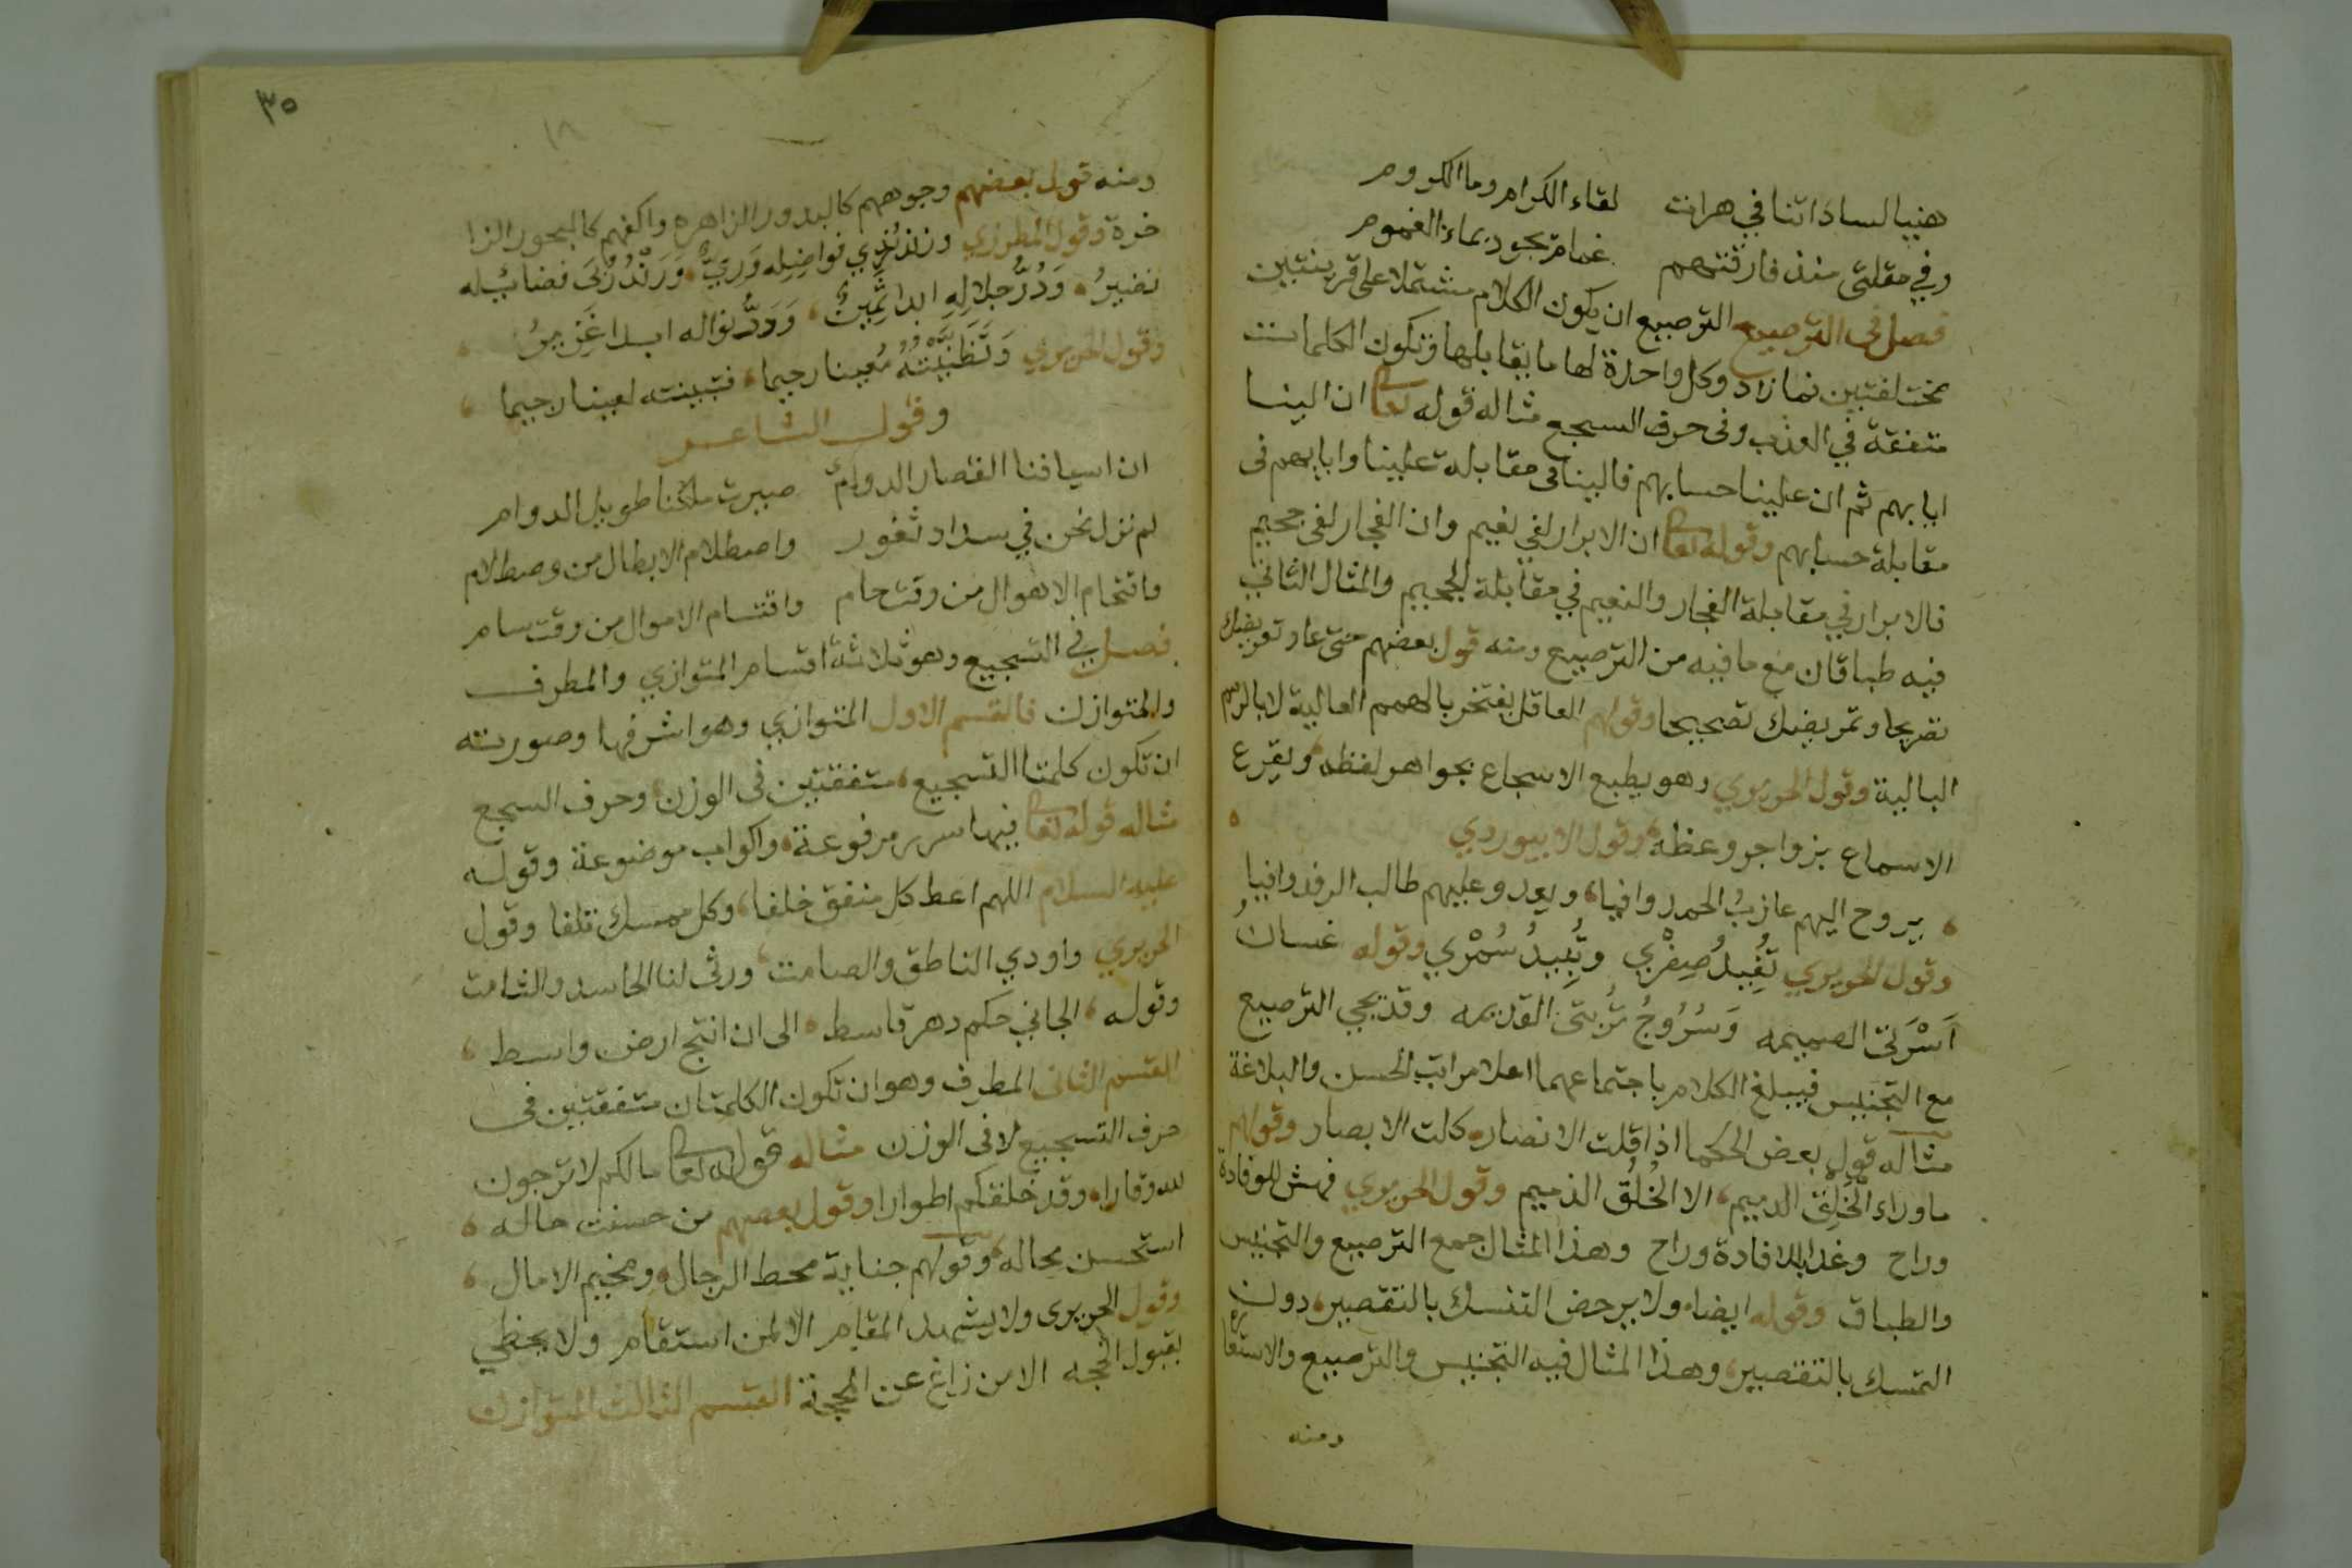 هنيا لساداتنا في هرات لقاء الكرام وماالكروم
وفي مقلتى منذ فارقتهم غمامة بجود بماء الغموم
فصل في الترصيع الترصيع ان يكون الكلام مشتملا على قرينتين
مختلفتين فما زاد وكل واحدة لها ما يقابلها وتكون الكلمات
متفقة في الوزن وفى حرف السجع مثاله قوله تعالى ان الينا
ايابهم ثم ان علينا حسابهم فالينا فى مقابلة علينا وايابهم فى
مقابلة حسابهم وقوله تعالى ان الابرار لفي نعيم وان الفجار لفى جحيم
فالابرار في مقابلة الفجار والنعيم في مقابلة الجحيم والمثال الثاني
فيه طباقان مع ما فيه من الترصيع ومنه قول بعضهم حتى عاد تعريضك
تصريحا وتمريضك تصحيحا وقولهم العاقل يفتخر بالهمم العالية لا بالرمم
البالية وقول الحريري وهو يطبع الاسجاع بجواهر لفظه ويقرع
الاسماع بزواجر وعظه وقول الابيوردي
يروح اليهم عازب الحمد وافيا ويعدو عليهم طالب الرفد وافيا
وقول الحريري تُفِيدُ صِفْرِي وتُبِيدُ سُمْرِي وقوله غسان
اَسْرَتى الصميمه وَسُرُوجُ تُربتى القديمه وقد يجي الترصيع
مع التجنيس فيبلغ الكلام باجتماعهما اعلا مراتب الحسن والبلاغة
مثاله قول بعض الحكما اذا قلت الانصار كلت الابصار وقولهم
ما وراء الخَلق الدميم الا الخُلُق الذميم وقول الحريري فهش للوفادة
وراح وغدا بالافادة وراح وهذا المثال جمع الترصيع والتجنيس
والطباق وقوله ايضا ولا يرحض التنسك بالتقصير دون
التمسك بالتقصير وهذا المثال فيه التجنيس والترصيع والاستعارة
ومنه
٣٥
ومنه قول بعضهم وجوههم كالبدور الزاهرة واكفهم كالبحور الزا
خرة وقول المطرزي وزند نَدِي فواضِلِه وَرِيّ وَرَنْدُ رُبَى فضائِله
نضيرُ وَدُرُّ جلالِهِ ابدا ثَمِينٌ وَدَرُّ نواله ابدا غَزِيرُ
وقول الحريري وَتَظَنَّيتُهُ مُعينا رحيما فتبينته لعينا رجيما
وقول الشاعر
ان اسيافنا القصار الدوامى صيرت ملكنا طويل الدوام
لم نزل نحن في سداد ثغور واصطلام الابطال من وسط لام
واقتحام الاهوال من وقت حام واقتسام الاموال من وقت سام
فصل في التسجيع وهو ثلاثة اقسام المتوازي والمطرف
والمتوازن فالقسم الاول المتوازي وهو اشرفها وصورته
ان تكون كلمتا التسجيع متفقتين فى الوزن وحرف السجع
مثاله قوله تعالى فيها سرر مرفوعة واكواب موضوعة وقوله
عليه السلام اللهم اعط كل منفق خلفا وكل ممسك تلفا وقول
الحريري واودي الناطق والصامت ورثى لنا الحاسد والشامت
وقوله الجاني حكم دهر قاسط الى ان انتجع ارض واسط
القسم الثانى المطرف وهو ان تكون الكلمتان متفقتين فى
حرف التسجيع لا فى الوزن مثاله قول الله تعالى مالكم لا ترجون
لله وقارا وقد خلقكم اطوارا وقول بعضهم من حسنت حاله
استحسن محاله وقولهم جنابه محط الرحال ومخيم الامال
وقول الحريرى ولا يشهد المقام الا لمن استقام ولا يحظي
بقبول الحجه الا من زاغ عن المحجة القسم الثالث المتوازن